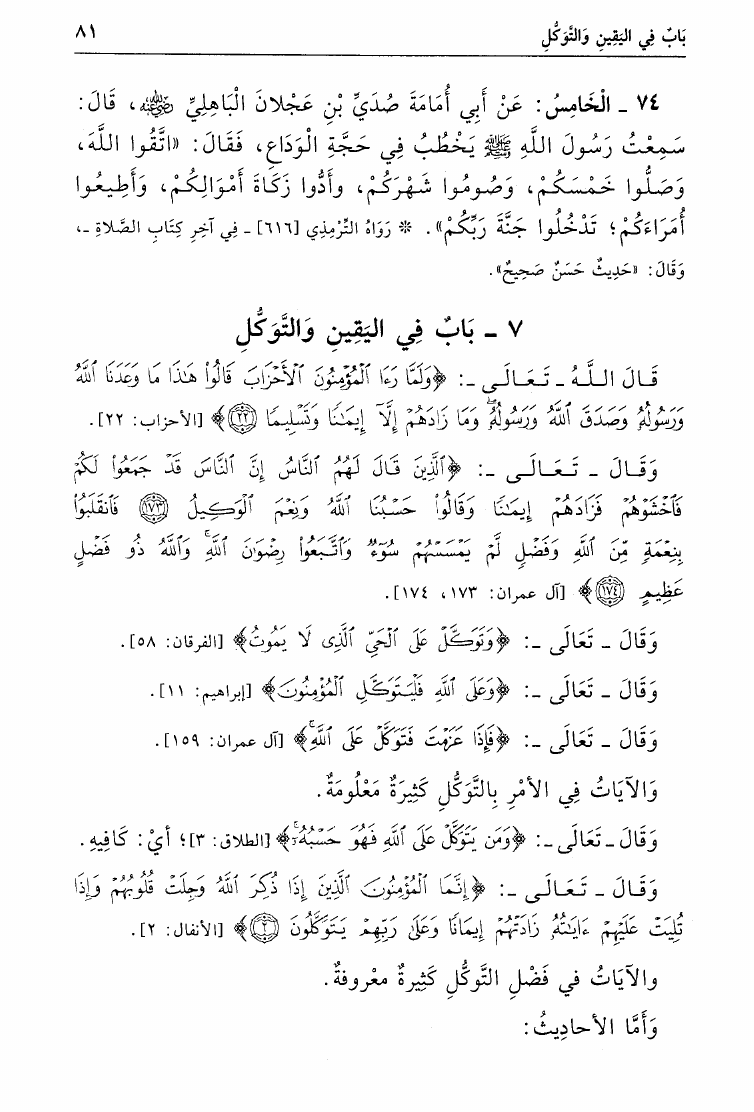 بَابٌ فِي اليَقِينِ وَالتَّوَكُّلِ ٨١
٧٤ ـ الْخَامِسُ: عَنْ أَبِي أُمَامَةَ صُدَيِّ بْنِ عَجْلانَ الْبَاهِلِيِّ رضي الله عنه، قَالَ:
سَمِعْتُ رَسُولَ اللَّهِ ﷺ يَخْطُبُ فِي حَجَّةِ الْوَدَاعِ، فَقَالَ: «اتَّقُوا اللَّهَ،
وَصَلُّوا خَمْسَكُمْ، وَصُومُوا شَهْرَكُمْ، وأَدُّوا زَكَاةَ أَمْوَالِكُمْ، وَأَطِيعُوا
أُمَرَاءَكُمْ؛ تَدْخُلُوا جَنَّةَ رَبِّكُمْ». * رَوَاهُ التِّرْمِذِي [٦١٦] ـ فِي آخِرِ كِتَابِ الصَّلاةِ ـ،
وَقَالَ: «حَدِيثٌ حَسَنٌ صَحِيحٌ».
٧ ـ بَابٌ فِي اليَقِينِ وَالتَّوَكُّلِ
قَالَ اللَّهُ ـ تَعَالَى ـ: ﴿وَلَمَّا رَءَا ٱلْمُؤْمِنُونَ ٱلْأَحْزَابَ قَالُوا۟ هَٰذَا مَا وَعَدَنَا ٱللَّهُ
وَرَسُولُهُۥ وَصَدَقَ ٱللَّهُ وَرَسُولُهُۥۚ وَمَا زَادَهُمْ إِلَّآ إِيمَٰنًا وَتَسْلِيمًا ٢٢﴾ [الأحزاب: ٢٢].
وَقَالَ ـ تَعَالَى ـ: ﴿ٱلَّذِينَ قَالَ لَهُمُ ٱلنَّاسُ إِنَّ ٱلنَّاسَ قَدْ جَمَعُوا۟ لَكُمْ
فَٱخْشَوْهُمْ فَزَادَهُمْ إِيمَٰنًا وَقَالُوا۟ حَسْبُنَا ٱللَّهُ وَنِعْمَ ٱلْوَكِيلُ ١٧٣ فَٱنقَلَبُوا۟
بِنِعْمَةٍ مِّنَ ٱللَّهِ وَفَضْلٍ لَّمْ يَمْسَسْهُمْ سُوٓءٌ وَٱتَّبَعُوا۟ رِضْوَٰنَ ٱللَّهِۗ وَٱللَّهُ ذُو فَضْلٍ
عَظِيمٍ ١٧٤﴾ [آل عمران: ١٧٣، ١٧٤].
وَقَالَ ـ تَعَالَى ـ: ﴿وَتَوَكَّلْ عَلَى ٱلْحَىِّ ٱلَّذِى لَا يَمُوتُ﴾ [الفرقان: ٥٨].
وَقَالَ ـ تَعَالَى ـ: ﴿وَعَلَى ٱللَّهِ فَلْيَتَوَكَّلِ ٱلْمُؤْمِنُونَ﴾ [إبراهيم: ١١].
وَقَالَ ـ تَعَالَى ـ: ﴿فَإِذَا عَزَمْتَ فَتَوَكَّلْ عَلَى ٱللَّهِۚ﴾ [آل عمران: ١٥٩].
وَالآيَاتُ فِي الأمْرِ بِالتَّوَكُّلِ كَثِيرَةٌ مَعْلُومَةٌ.
وَقَالَ ـ تَعَالَى ـ: ﴿وَمَن يَتَوَكَّلْ عَلَى ٱللَّهِ فَهُوَ حَسْبُهُۥٓۚ﴾ [الطلاق: ٣]؛ أيْ: كَافِيهِ.
وَقَالَ ـ تَعَالَى ـ: ﴿إِنَّمَا ٱلْمُؤْمِنُونَ ٱلَّذِينَ إِذَا ذُكِرَ ٱللَّهُ وَجِلَتْ قُلُوبُهُمْ وَإِذَا
تُلِيَتْ عَلَيْهِمْ ءَايَٰتُهُۥ زَادَتْهُمْ إِيمَانًا وَعَلَىٰ رَبِّهِمْ يَتَوَكَّلُونَ ٢﴾ [الأنفال: ٢].
والآيَاتُ في فَضْلِ التَّوكُّلِ كَثِيرةٌ معْروفةٌ.
وَأَمَّا الأحادِيثُ: